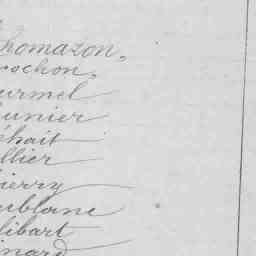 Thomazon,
rochon,
urmel
unier
éhait
llier
ierry
eublanc
libart
inard